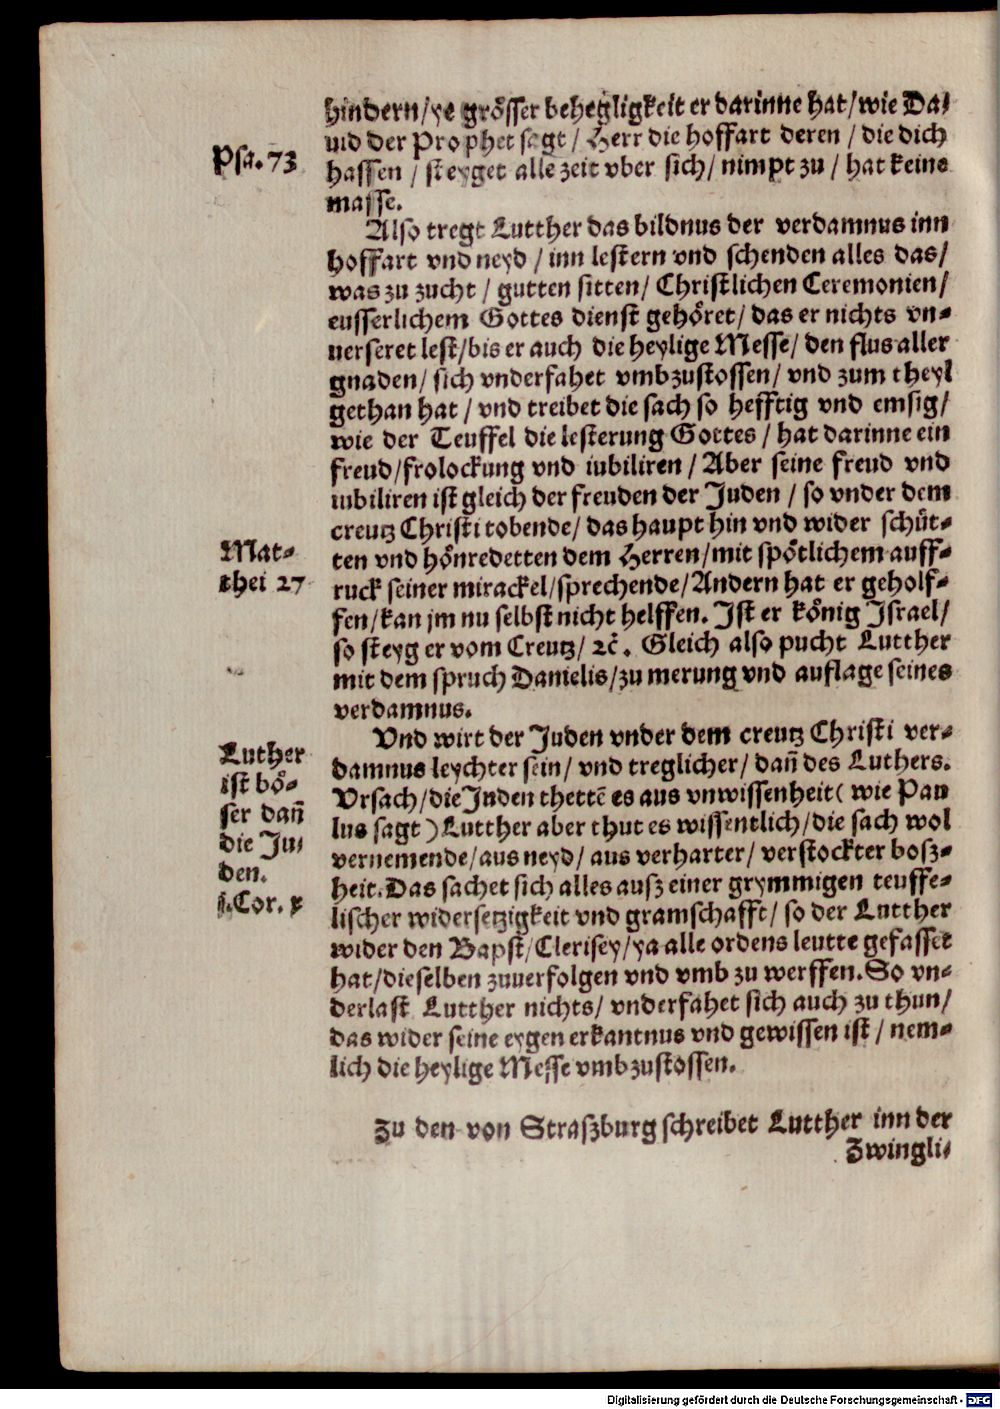 hindern/ye grösser behegligkeit er darinne hat/wie Da-
uid der Prophet sagt / Herr die hoffart deren / die dich
Psa. 73
hassen / steyget alle zeit vber sich/ nimpt zu / hat keine
masse.
Also tregt Lutther das bildnus der verdamnus inn
hoffart vnd neyd / inn lestern vnd schenden alles das/
was zu zucht / gutten sitten/ Christlichen Ceremonien/
eusserlichem Gottes dienst gehöret/ das er nichts vn-
uerseret lest/bis er auch die heylige Messe/ den flus aller
gnaden/ sich vnderfahet vmbzustossen/ vnd zum theyl
gethan hat / vnd treibet die sach so hefftig vnd emsig/
wie der Teuffel die lesterung Gottes / hat darinne ein
freud/frolockung vnd iubiliren / Aber seine freud vnd
iubiliren ist gleich der freuden der Juden / so vnder dem
creutz Christi tobende/ das haupt hin vnd wider schüt-
Mat-
thei 27
ten vnd hönredetten dem Herren/mit spötlichem auff-
ruck seiner mirackel/sprechende/Andern hat er geholf-
fen/kan jm nu selbst nicht helffen. Ist er könig Israel/
so steyg er vom Creutz/ ꝛc̃. Gleich also pucht Lutther
mit dem spruch Danielis/zu merung vnd auflage seines
verdamnus.
Vnd wirt der Juden vnder dem creutz Christi ver-
damnus leychter sein/ vnd treglicher/ dañ des Luthers.
Luther
ist bö-
ser dañ
die Ju-
den.
j.Cor. x
Vrsach/die Juden thettē es aus vnwissenheit( wie Pau
lus sagt )Lutther aber thut es wissentlich/die sach wol
vernemende/aus neyd/ aus verharter/ verstockter bosz-
heit. Das sachet sich alles ausz einer grymmigen teuffe-
lischer widersetzigkeit vnd gramschafft/ so der Lutther
wider den Bapst/Clerisey/ya alle ordens leutte gefasset
hat/dieselben zuuerfolgen vnd vmb zu werffen. So vn-
derlast Lutther nichts/ vnderfahet sich auch zu thun/
das wider seine eygen erkantnus vnd gewissen ist / nem-
lich die heylige Messe vmbzustossen.
Zu den von Straszburg schreibet Lutther inn der
Zwingli-
Digitalisierung gefördert durch die Deutsche Forschungsgemeinschaft - DFG